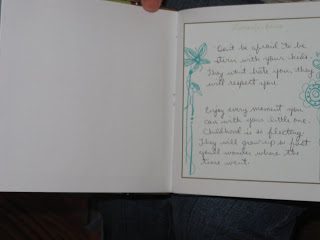 Don't be afraid to be
stern with your kids.
They wont hate you, they
will respect you
Enjoy every moment you
can with your little one.
Childhood is so fleeting.
They will grow up so fast
you'll wonder where the
time went.